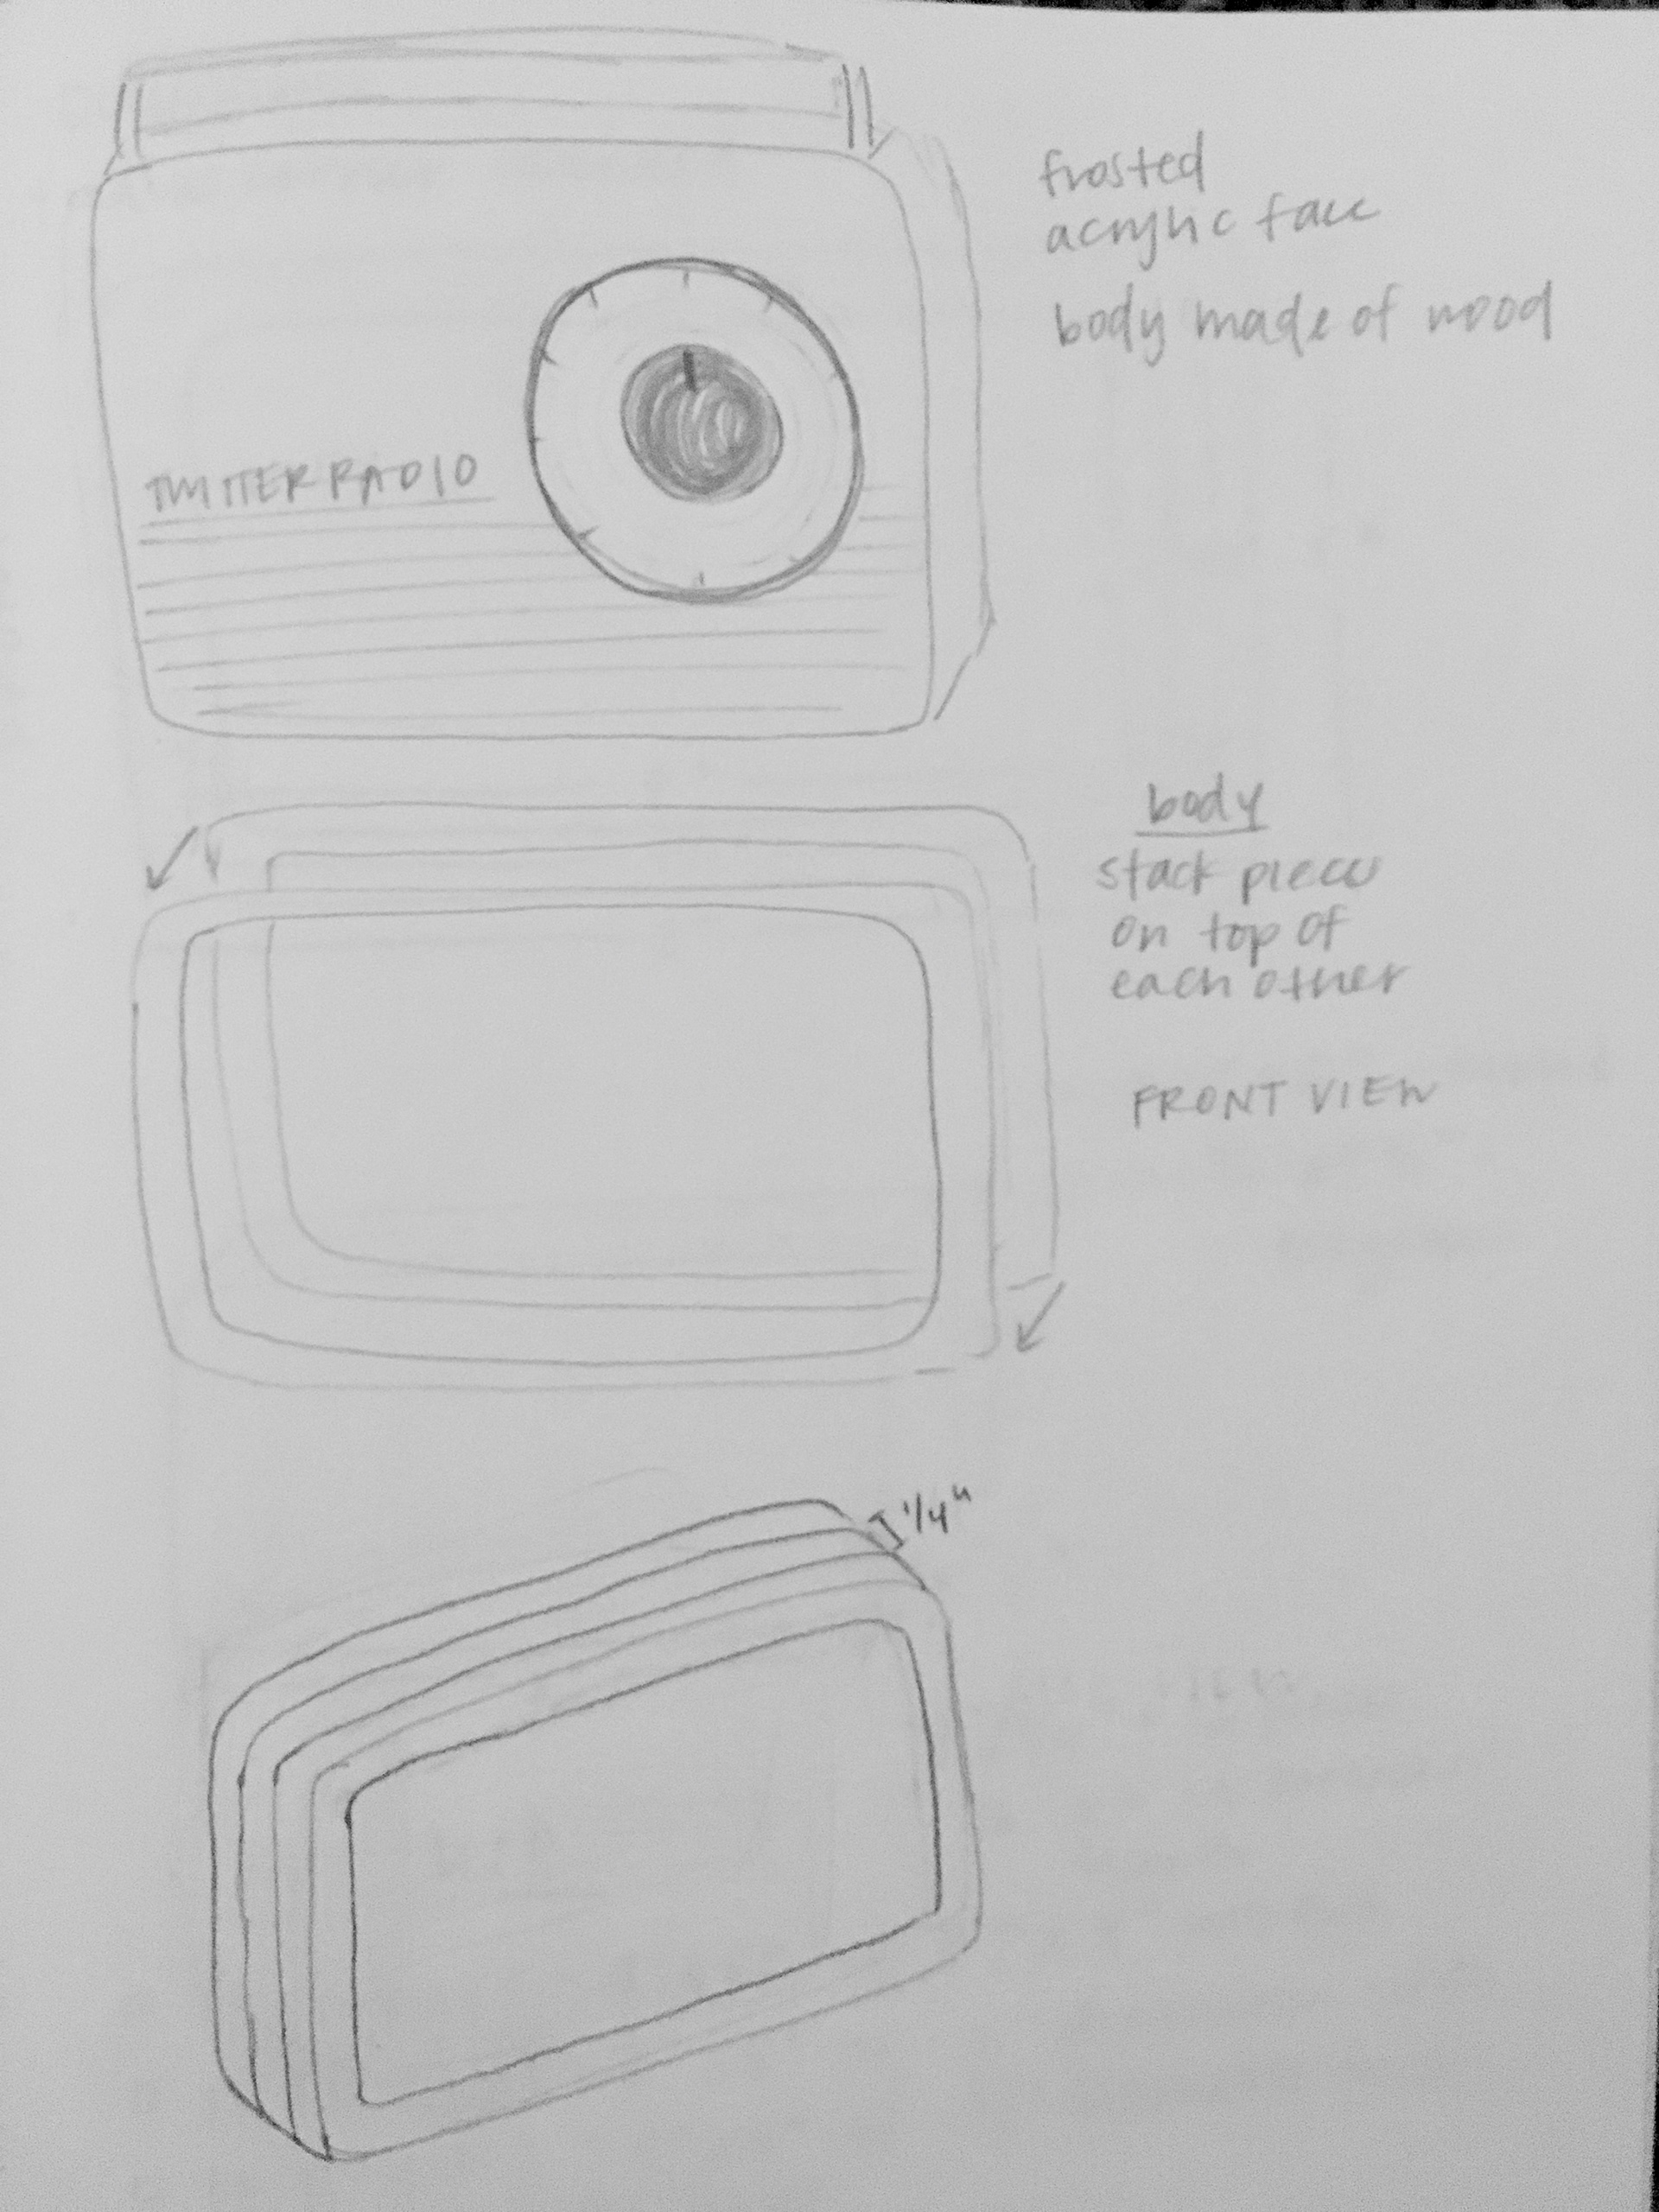 frosted
acrylic face
body made of wood
TWITTER RADIO
body
stack pieces
on top of
each other
FRONT VIEW
1/4"